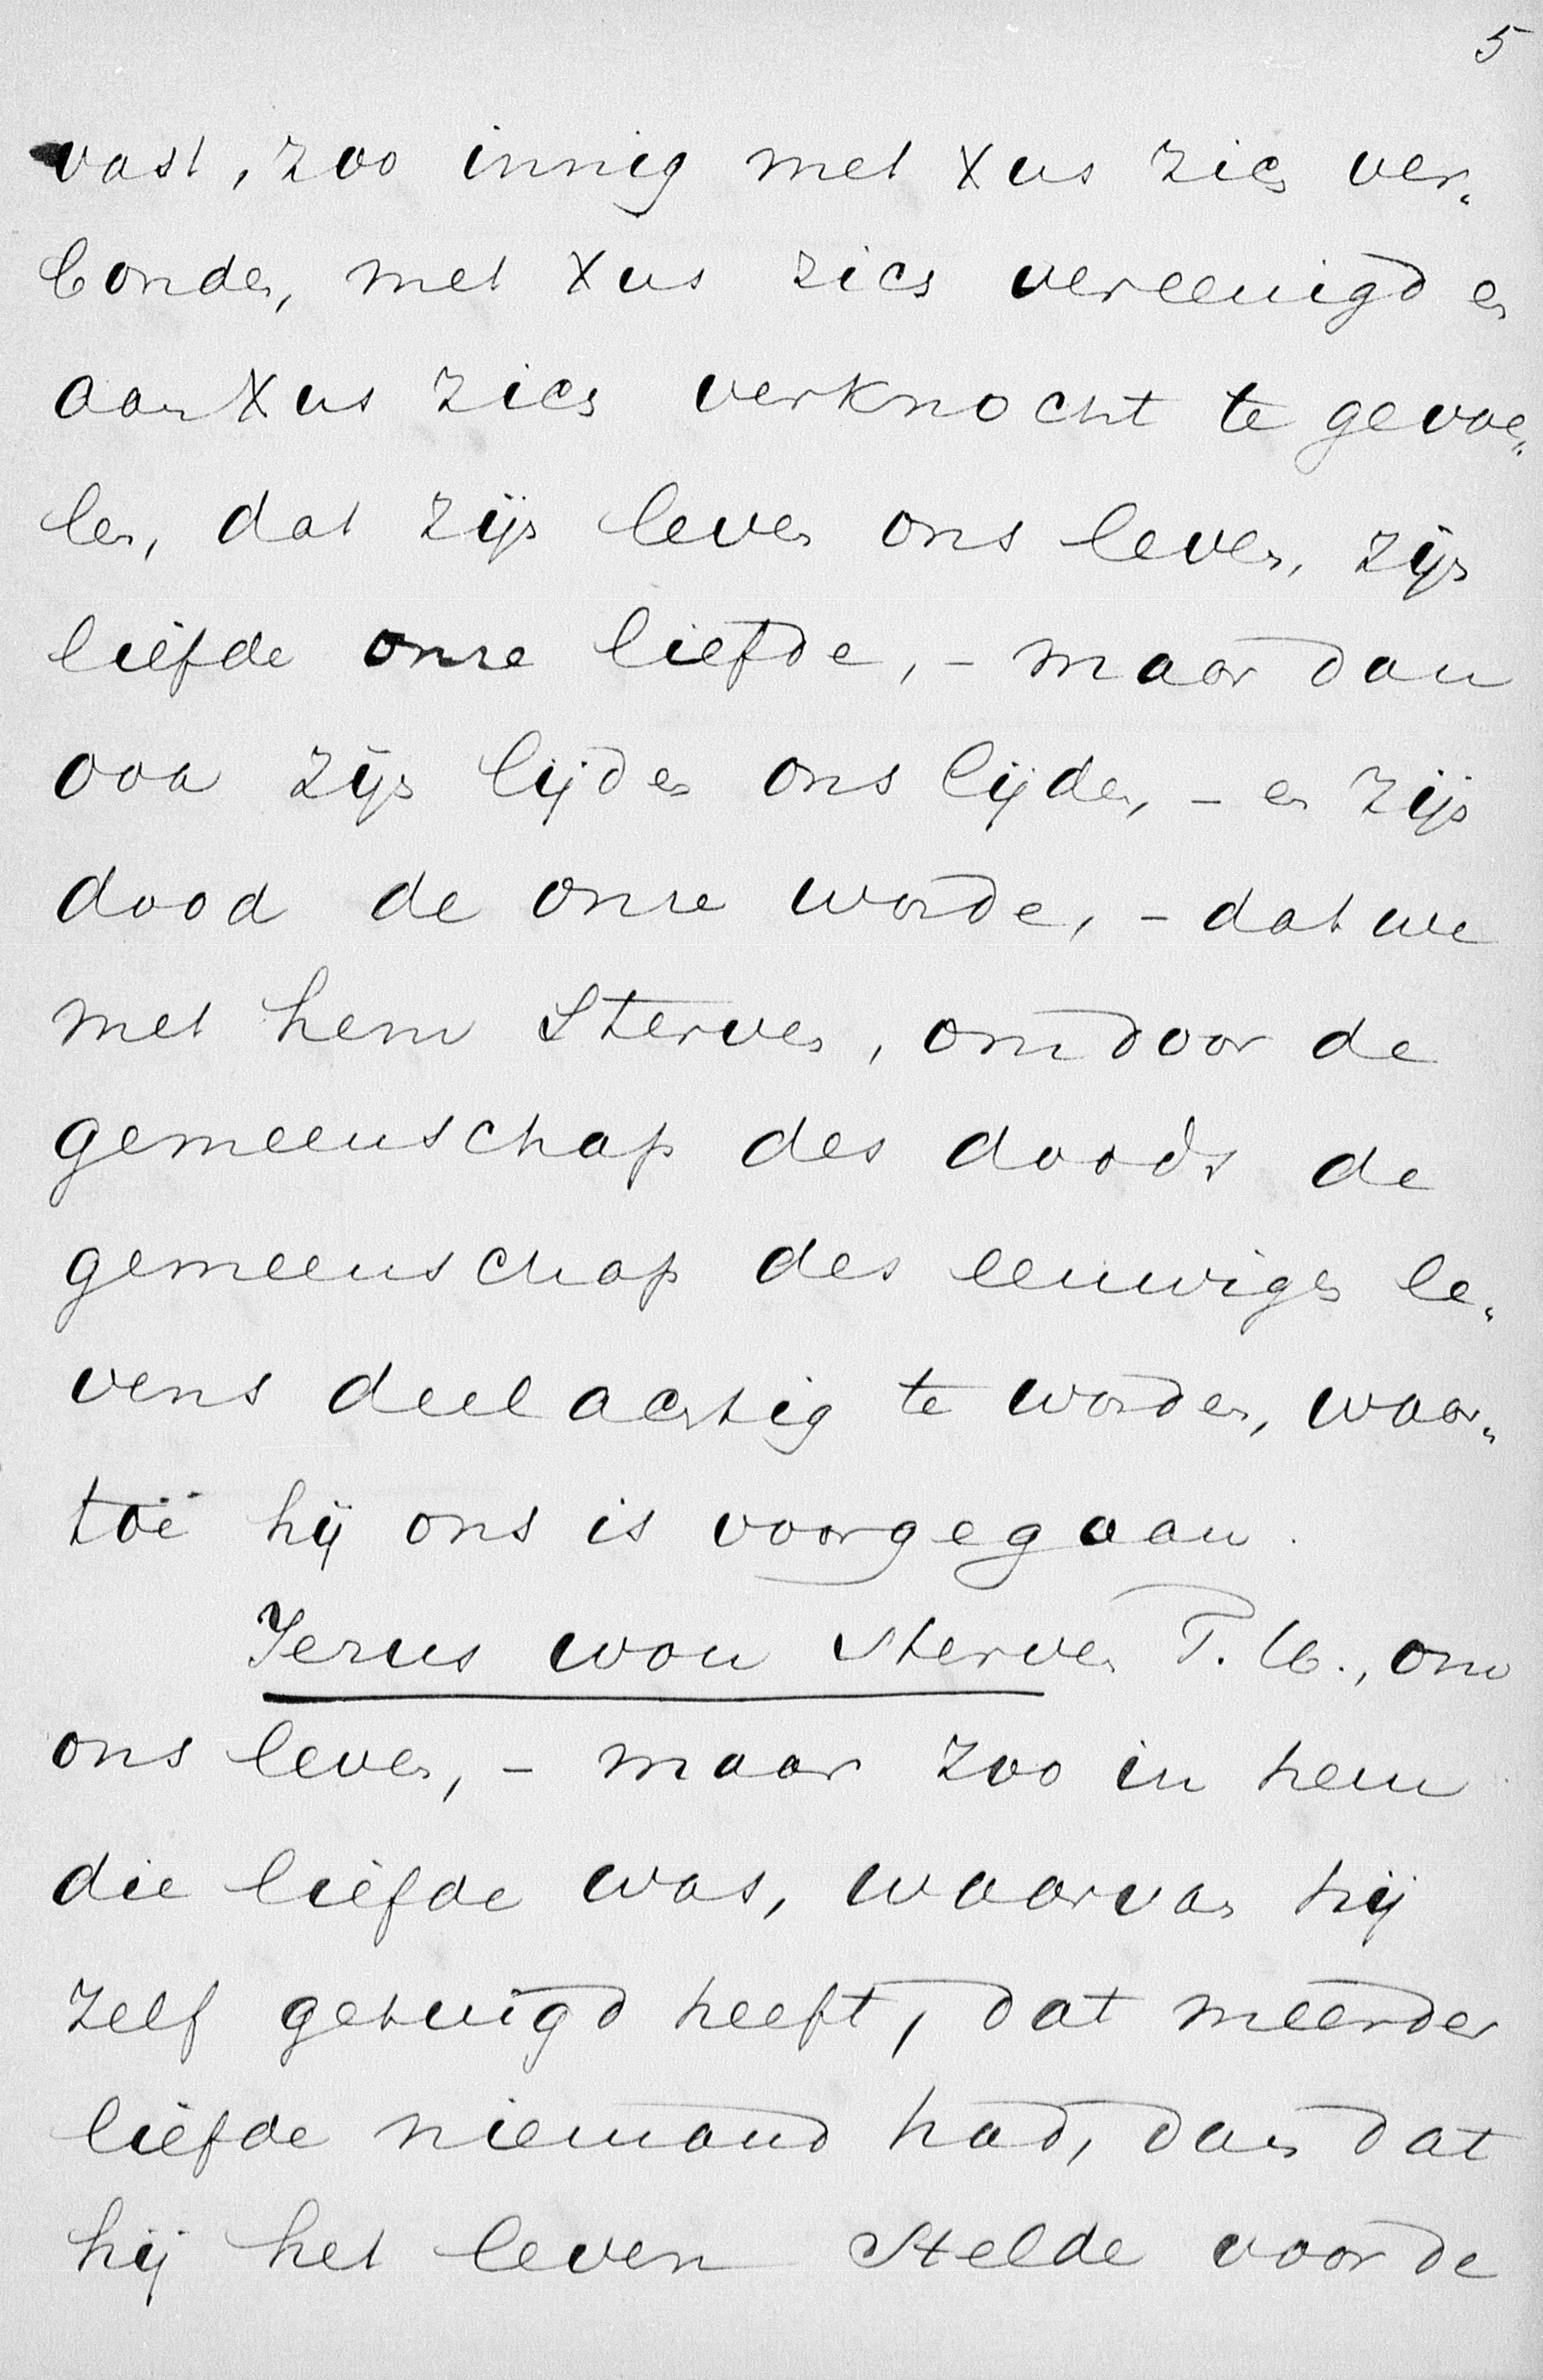 5
vast, zoo innig met Xus zich ver„
bonden, met Xus zich vereenigd en
aan Xus zich verknocht te gevoe„
len, dat zijn leven ons leven, zijn
liefde onze liefde, – maar dan
ook zijn lijden ons lijden, – en zijn
dood de onze worde, – dat we
met hem sterven, om door de
gemeenschap des doods de
gemeenschap des eeuwigen le„
vens deelachtig te worden, waar„
toe hij ons is voorgegaan.
Jezus wou sterven T. G., om
ons leven, – maar zoo in hem
die liefde was, waarvan hij
zelf getuigd heeft, dat meerder
liefde niemand had, dan dat
hij het leven stelde voor de